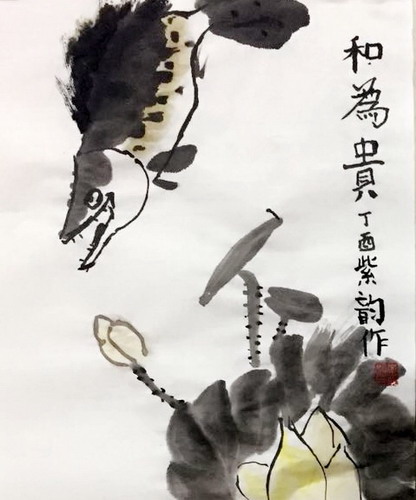 和為貴丁酉紫韵作